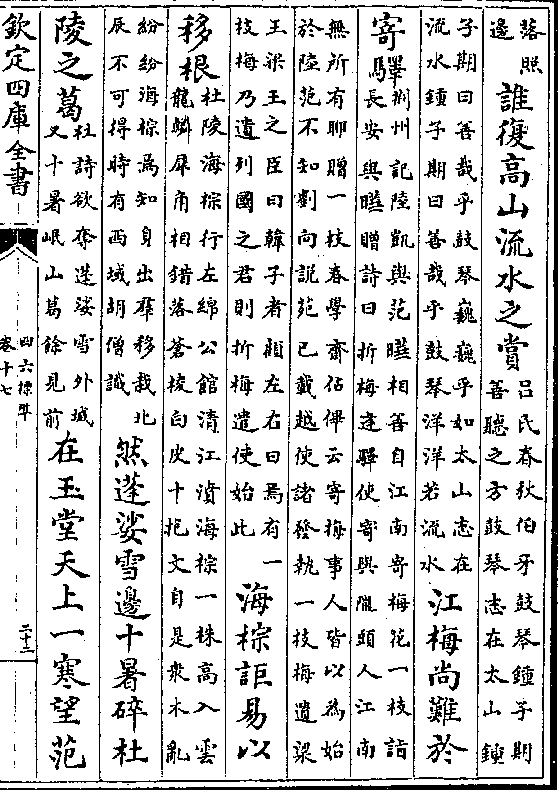 落照
邊
誰復高山流水之賞
呂氏春秋伯牙鼓琴鍾子期
善聽之方鼓琴志在太山鍾
子期曰善哉乎鼓琴巍巍乎如太山志在
流水鍾子期曰善哉乎鼓琴洋洋若流水
江梅尚難於
寄驛
荆州記陸凱與范曄相善自江南寄梅花一枝詣
長安與曄贈詩曰折梅逢驛使寄與隴頭人江南
無所有聊贈一枝春學齋佔俾云寄梅事人皆以為始
於陸范不知劉向説苑已載越使諸發執一枝梅遺梁
王梁王之臣曰韓子者顧左右曰焉有一
枝梅乃遺列國之君則折梅遣使始此
海棕詎易以
移根
杜陵海棕行左綿公館清江濆海棕一株高入雲
龍鱗犀角相錯落蒼棱白皮十抱文自是衆木亂
紛紛海棕焉知身出羣移栽北
辰不可得時有西域胡僧識
然蓬婆雪邊十暑碎杜
陵之葛
杜詩欲奪蓬婆雪外城
又十暑岷山葛餘見前
在玉堂天上一寒望范
欽定四庫全書
四六標凖
卷十七
二十三